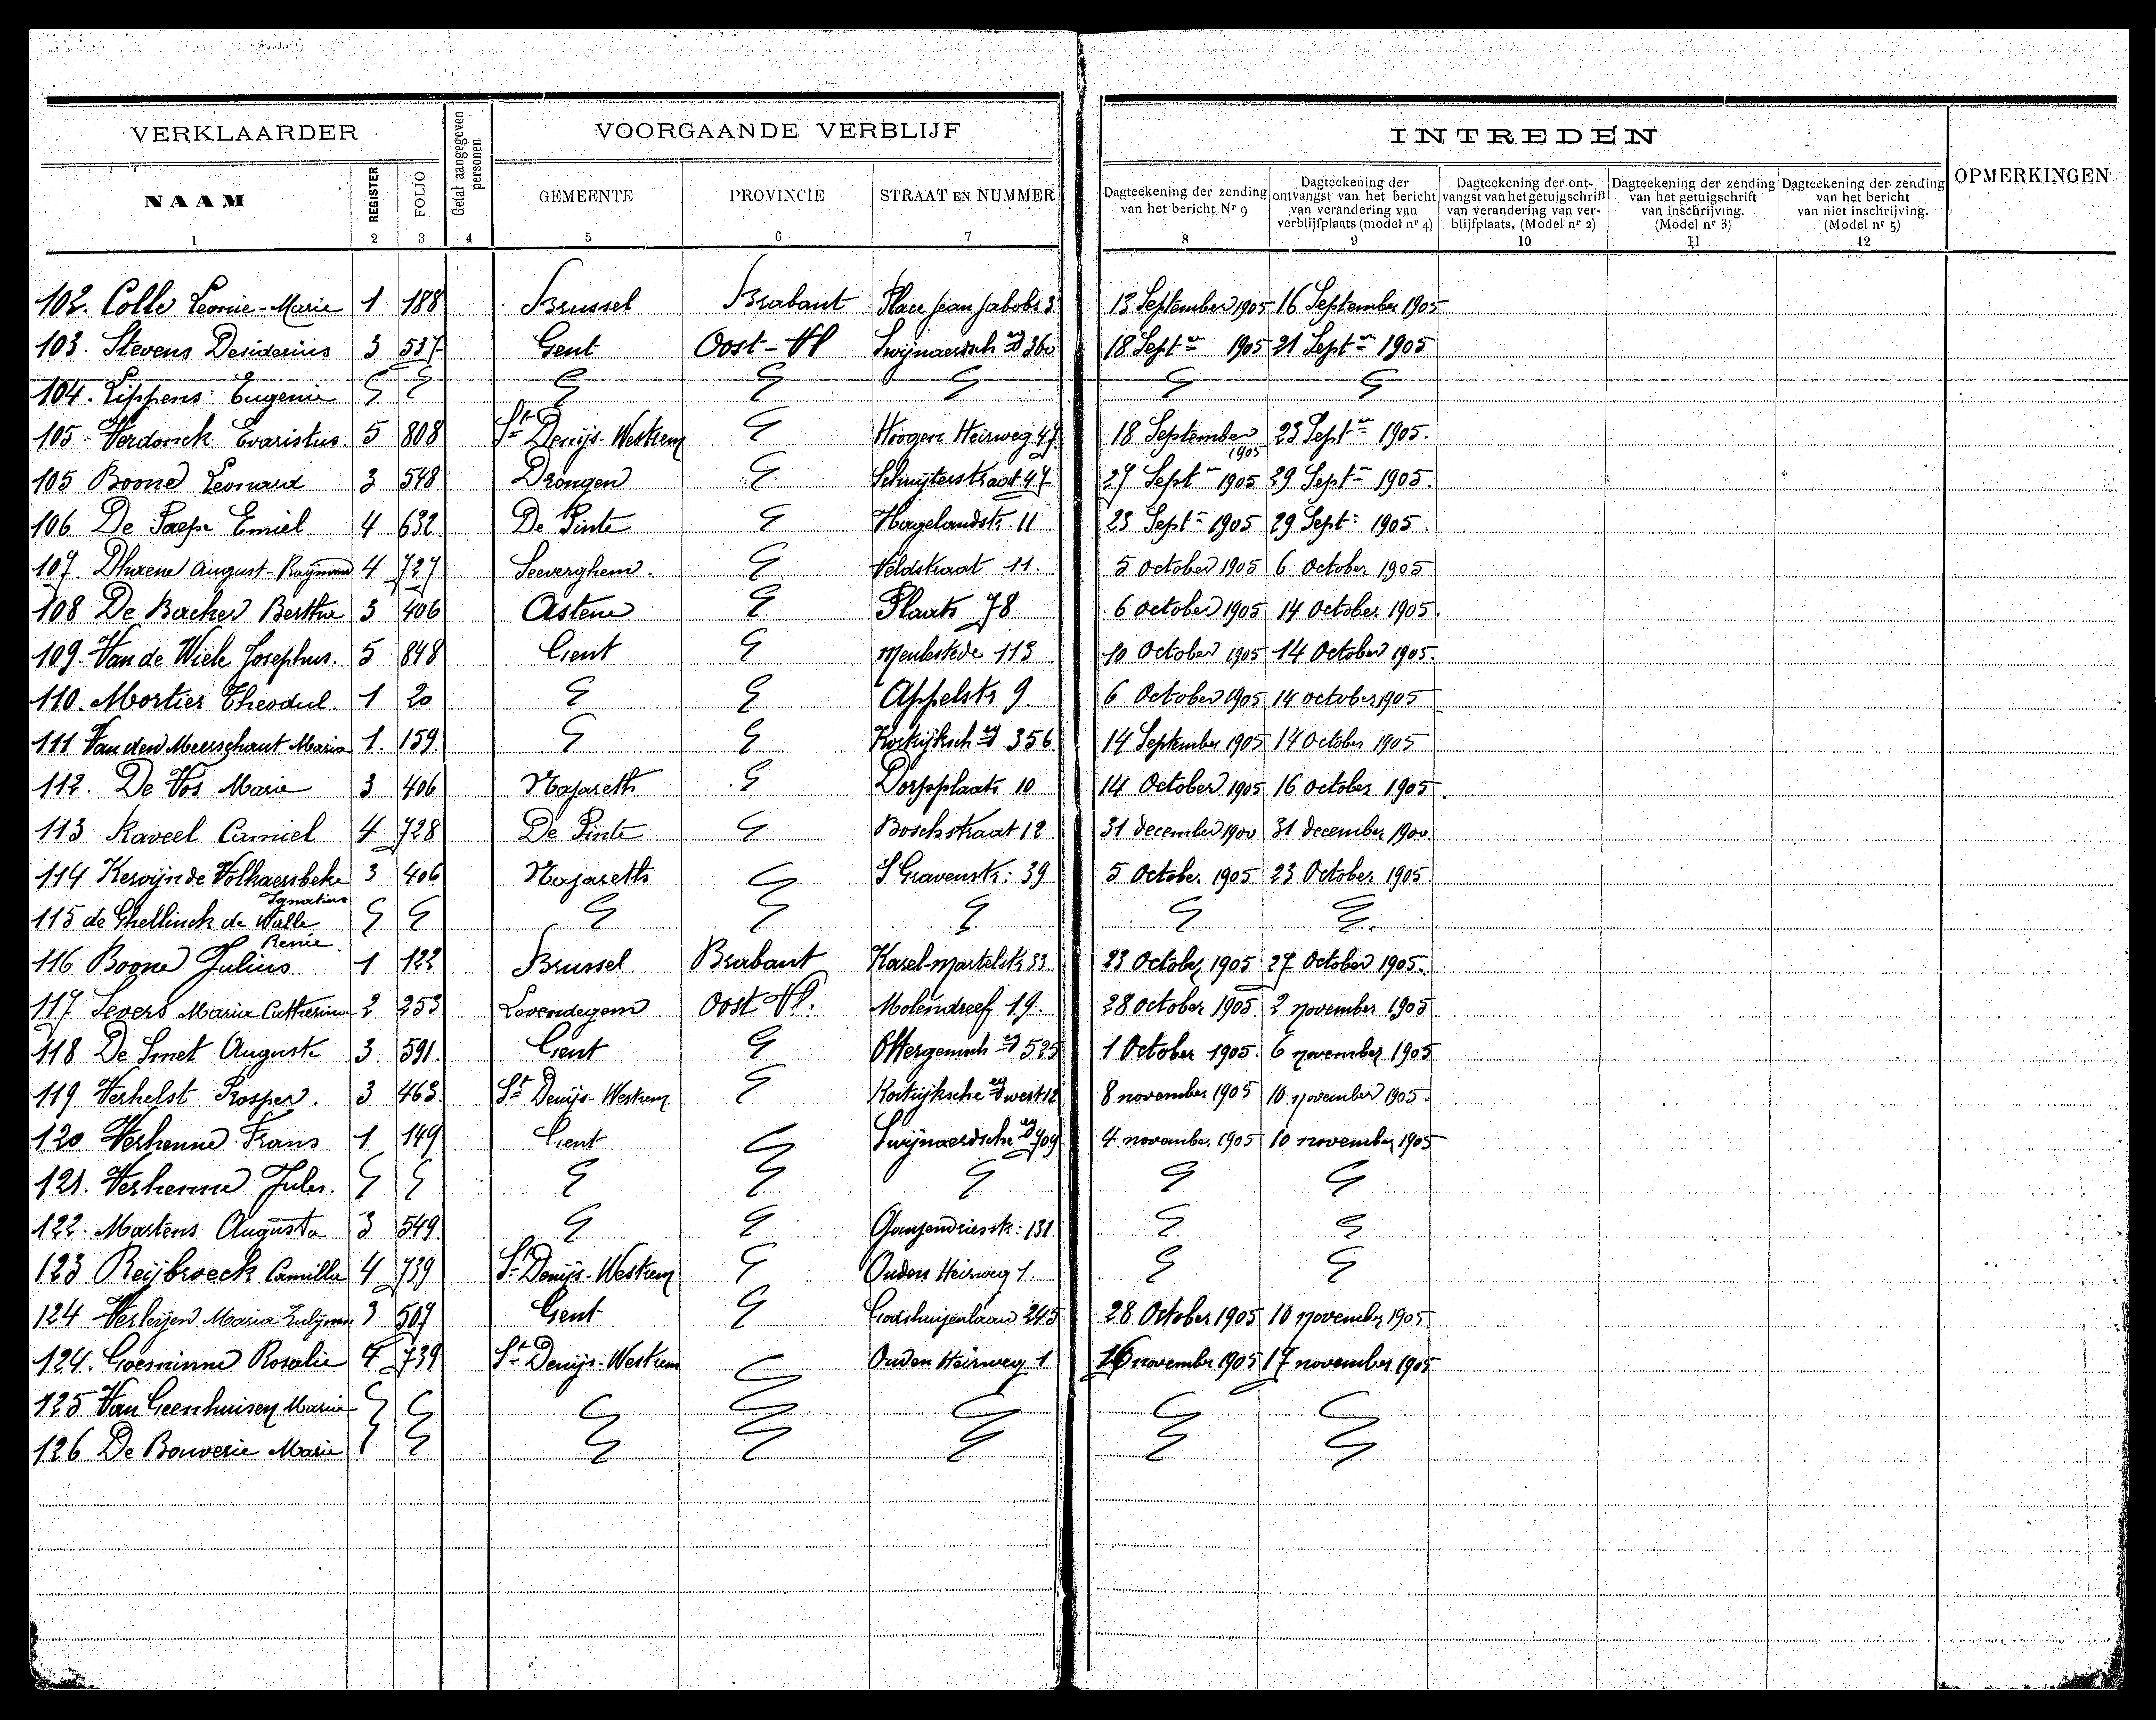 VERKLAARDER
Getal aangegeven personen
VOORGAANDE VERBLIJF
INTREDEN
OPMERKINGEN
NAAM REGISTER FOLIO GEMEENTE PROVINCIE STRAAT EN NUMMER
Dagteekening der zending van het bericht Nr 9
Dagteekening der ontvangst van het bericht van verandering van verblijfplaats (model nr 4)
Dagteekening der ontvangst van het getuigschrift van verandering van verblijfplaats. (Model nr 2)
Dagteekening der zending van het getuigschrift van inschrijving. (Model nr 3)
Dagteekening der zending van het bericht van niet inschrijving. (Model nr 5)
1 2 3 4 5 6 7 8 9 10 11 12
102. Colle Leonie-Marie 1 188 Brussel Brabant Place Jean Jabobs 3 13 September 1905 16 September 1905
103. Stevens Desiderius 3 537 Gent Oost-Vl Swijnaerdsch stwg 360 18 Septr 1905 21 Septr 1905
104. Lippens Eugenie
105. Verdonck Evaristus. 5 808 St Denijs-Westrem Hoogen Heirweg 47 18 September 1905 23 Septr 1905.
105 Boone Leonard 3 548 Drongen 47 27 Septr 1905 29 Septr 1905.
106 De Paepe Emiel 4 632 De Pinte Hagelandstr. 11 23 Septr 1905 29 Sept: 1905.
107. August-Raymond 4 727 Seeverghem. Veldstraat 11. 5 October 1905 6 October 1905
108 De Backer Bertha 3 406 Astene Plaats 78 6 october 1905 14 October 1905.
109. Van de Wiele Josephus. 5 848 Gent Meulestede 113 10 October 1905 14 October 1905.
110. Mortier Theodul. 1 20 Appelstr 9. 6 October 1905 14 october 1905
111 Van den Meerschaut Maria 1. 159. Kortrijksch 356 14 September 1905 14 October 1905
112. De Vos Marie 3 406 Nazareth Dorpplaats 10 14 October 1905 16 october 1905.
113 Raveel Camiel 4 728 De Pinte Boschstraat 12 31 december 1900 31 december 1900.
114 Kervijn de Volkaersbeke Ignatius 3 406 Nazareth S Gravenstr: 39 5 October 1905 23 October 1905.
115 de Ghellinck de Walle Renie
116 Boone Julius 1 122 Brussel Brabant Karel-Martelstr 33 23 October 1905 27 October 1905.
117 Sevens Maria Catherina 2 253 Lovendegem Oost Vl. Molendreef 19. 28 october 1905 2 november 1905
118 De Smet Auguste 3 591. Gent Ottergemsch 525 1 October 1905. 6 november 1905
119 Verhelst Prosper. 3 463. St Denijs-Westrem Kortrijksche west 12 8 november 1905 10 november 1905.
120 Verhenne Frans 1 149 Gent Swijnaerdsche 709 4 november 1905 10 november 1905
121. Verhenne Jules.
122. Martens Augusta 3 549. Ganzendriesstr: 131.
123 Reijbroeck Camilla 4 739 St Denijs-Westrem Ouden Heirweg 1.
124 Verleijen Maria 3 507 Gent Godshuizenlaan 245 28 October 1905 10 november 1905
124. Goeminne Rosalie 4 739 St Denijs-Westrem Ouden Heirweg 1 16 november 1905 17 november 1905
125 Van Geenhuisen Marie
126 De Bouverie Marie